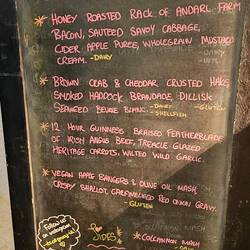 * HONEY ROASTED RACK OF ANDARL FARM
BACON, SAUTEED SAVOY CABBAGE,
CIDER APPLE PUREE, WHOLEGRAIN MUSTARD
CREAM. - DAIRY
* BROWN CRAB & CHEDDAR CRUSTED HAKE,
SMOKED HADDOCK BRANDADE, DILLISK
SEAWEED BEURRE BLANC. - DAIRY - GLUTEN
- SHELLFISH
* 12 HOUR GUINNESS BRAISED FEATHERBLADE
OF IRISH ANGUS BEEF, TREACLE GLAZED
HERITAGE CARROTS, WILTED WILD GARLIC.
* VEGAN APPLE BANGERS & OLIVE OIL MASH
CRISPY SHALLOT, CARAMELISED RED ONION GRAVY.
- GLUTEN
Follow us
on instagram
SIDES
* COLCANNON MASH